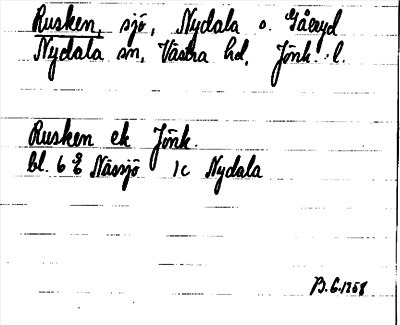 Rusken, sjö, Nydala o. Gåeryd
Nydala sn, Västra hd, Jönk. l.
Rusken ek Jönk.
bl. 6 E Nässjö 1c Nydala
B.G. 1258